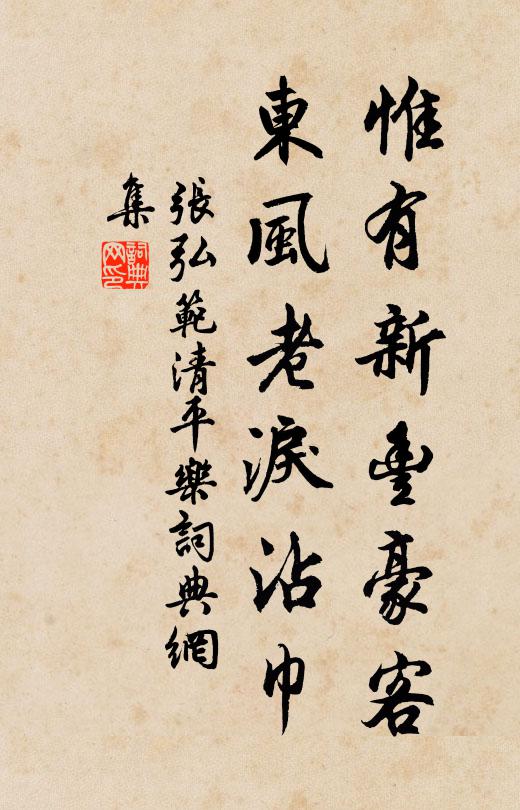 惟有新豐豪客
東風老淚沾巾
張弘範清平樂詞典網
集
詞典網印